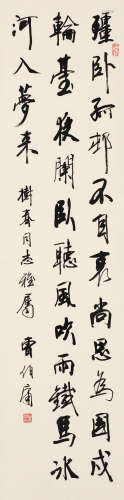 殭卧孤邨不自哀尚思為國戍
輪臺夜闌臥聽風吹雨鐵馬冰
河入夢来
樹春同志雅屬 曹伯庸